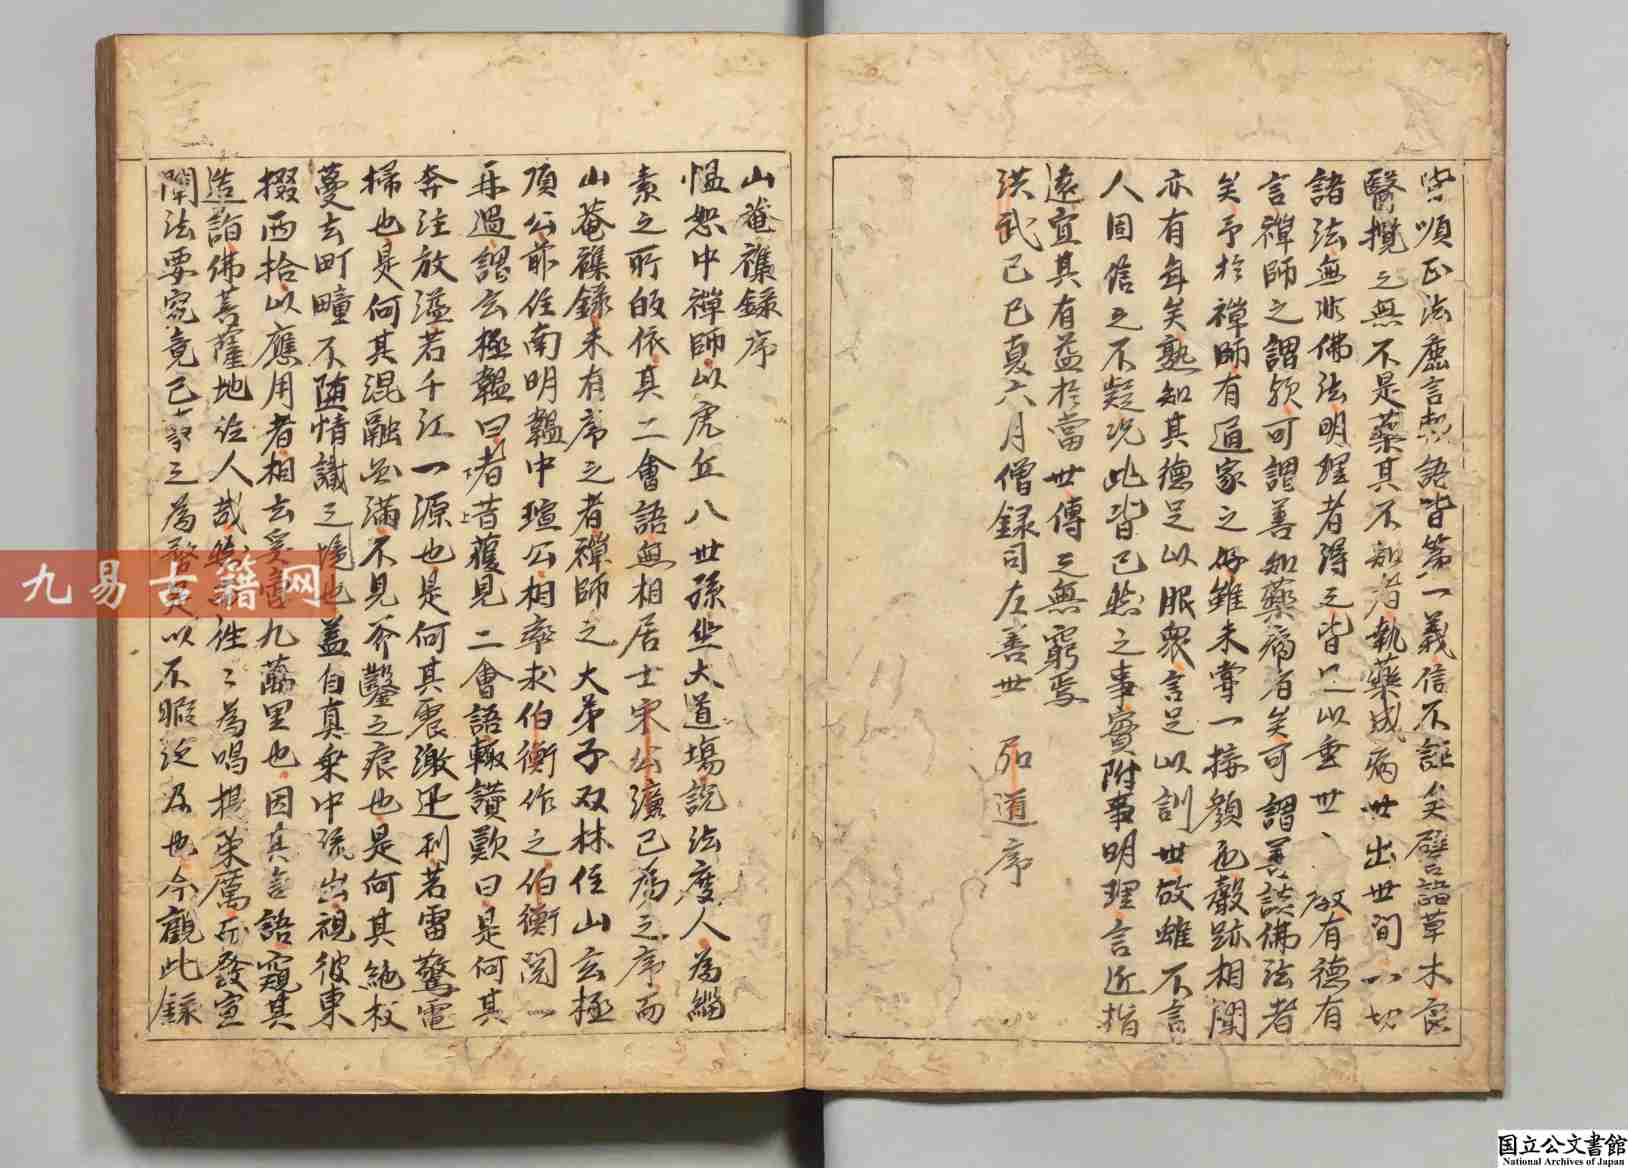 皆順正法麤言軟語皆第一義信不誣矣譬諸草木良
醫攬之無不是藥其不知者執藥成病世出世間一切
諸法無非佛法明躍者得之皆足以垂世、故有德有
言禪師之謂欤可謂善知藥病者矣可謂善談佛法者
矣予於禪師有通家之好雖未嘗一接顏而聲跡相聞
亦有年矣熟知其德足以服衆言足以訓世故雖不言
人固信之不疑況此皆已然之事實附事明理言近指
遠宜其有益於當世傳之無窮焉
洪武己巳夏六月僧錄司左善世 弘道序
山菴襍錄序
愠恕中禪師以虎丘八世孫坐大道塲說法度人為緇
素之所皈依其二會語無相居士宋公濂已為之序而
山菴襍錄未有序之者禪師之大弟子双林住山玄極
頂公前住南明韞中瑄公相率求伯衡作之伯衡閱一
再過謂玄極韞曰者昔獲見二會語輒讃歎曰是何其
奔注放溢若千江一源也是何其震激迅利若雷驚電
掃也是何其混融圎滿不見斧鑿之痕也是何其絶校
蔓去町疃不随情識之境也盖自真乗中流出視彼東
掇西拾以應用者相去奚啻九萬里也因其言語窺其
造詣佛菩薩地位人哉 徃〻為唱提策厲而發宣
闡法要究竟己事之為 以不暇泛及也今觀此錄
九易古籍网
国立公文書館
National Archives of Japan